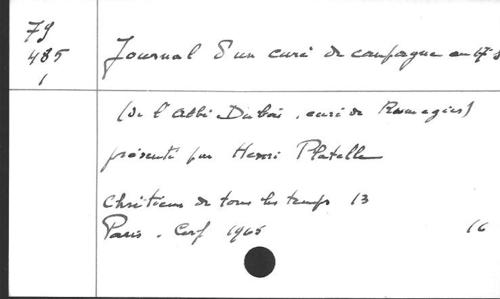 79
485
1
Journal d'un curé de campagne au 17e s
(de l'abbé Dubois, curé de Rumegies)
présenté par Henri Platelle
Chrétiens de tous les temps 13
Paris. Cerf 1965 16